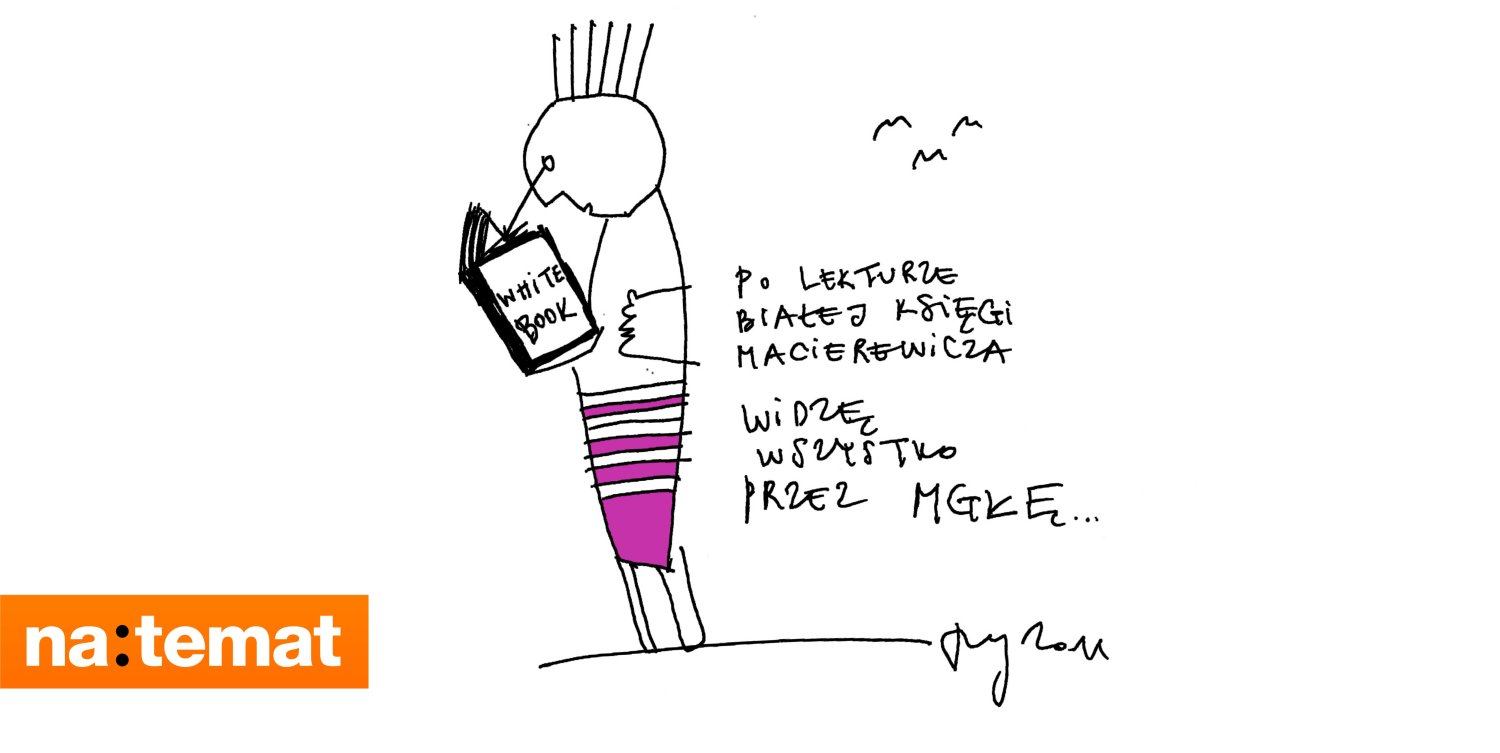 WHITE
BOOK
PO LEKTURZE
BIAŁEJ KSIĘGI
MACIEREWICZA
WIDZĘ
WSZYSTKO
PRZEZ MGŁĘ...
na:temat